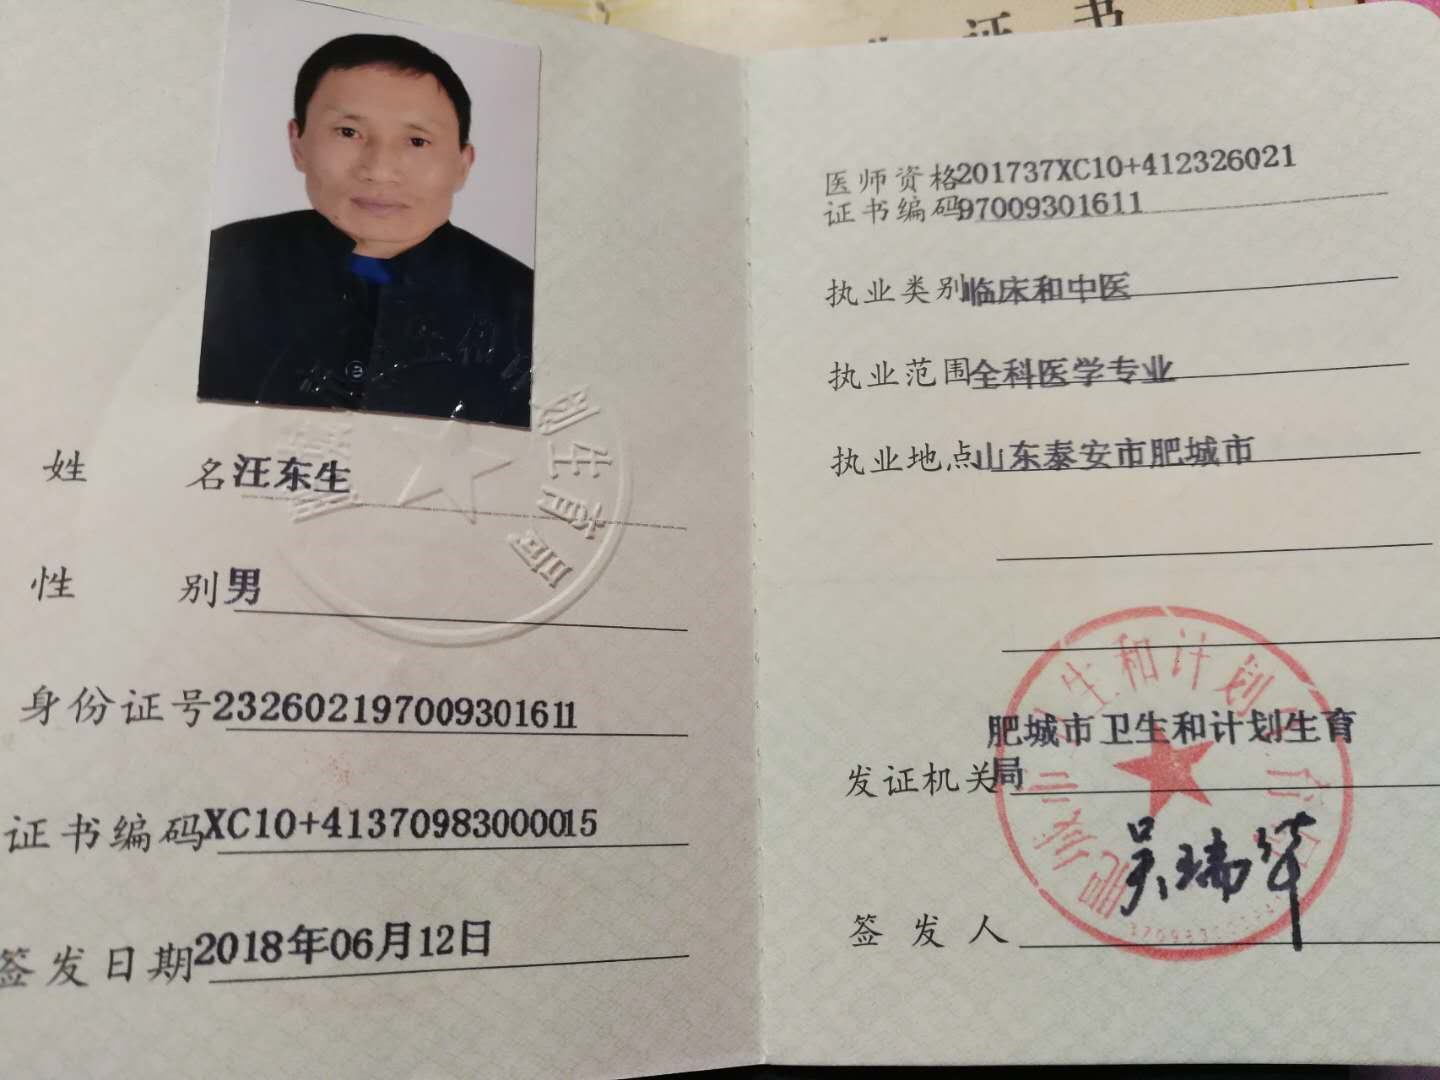 证书
姓名汪东生
性别男
身份证号232602197009301611
证书编码XC10+41370983000015
签发日期2018年06月12日
医师资格201737XC10+412326021
证书编码97009301611
执业类别临床和中医
执业范围全科医学专业
执业地点山东泰安市肥城市
肥城市卫生和计划生育
发证机关局
生和计划
签发人吴瑞华